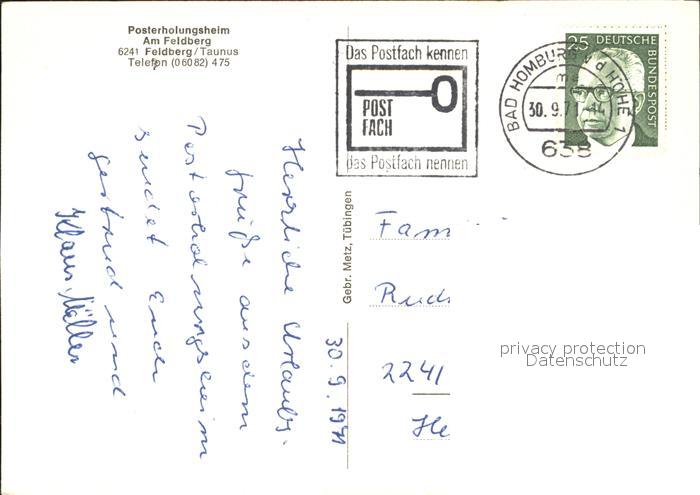 Posterholungsheim
Am Feldberg
6241 Feldberg/Taunus
Telefon (06082) 475
Das Postfach kennen
POST
FACH
das Postfach nennen
BAD HOMBURG v d HÖHE 1
30.9.71
638
25 DEUTSCHE BUNDESPOST
30.9.1971
Herrliche Urlaubs-
grüße aus dem
Posterholungsheim
sendet Euer
und
Klaus Müller
Gebr. Metz, Tübingen
Fam
Rud
2241
He
privacy protection
Datenschutz